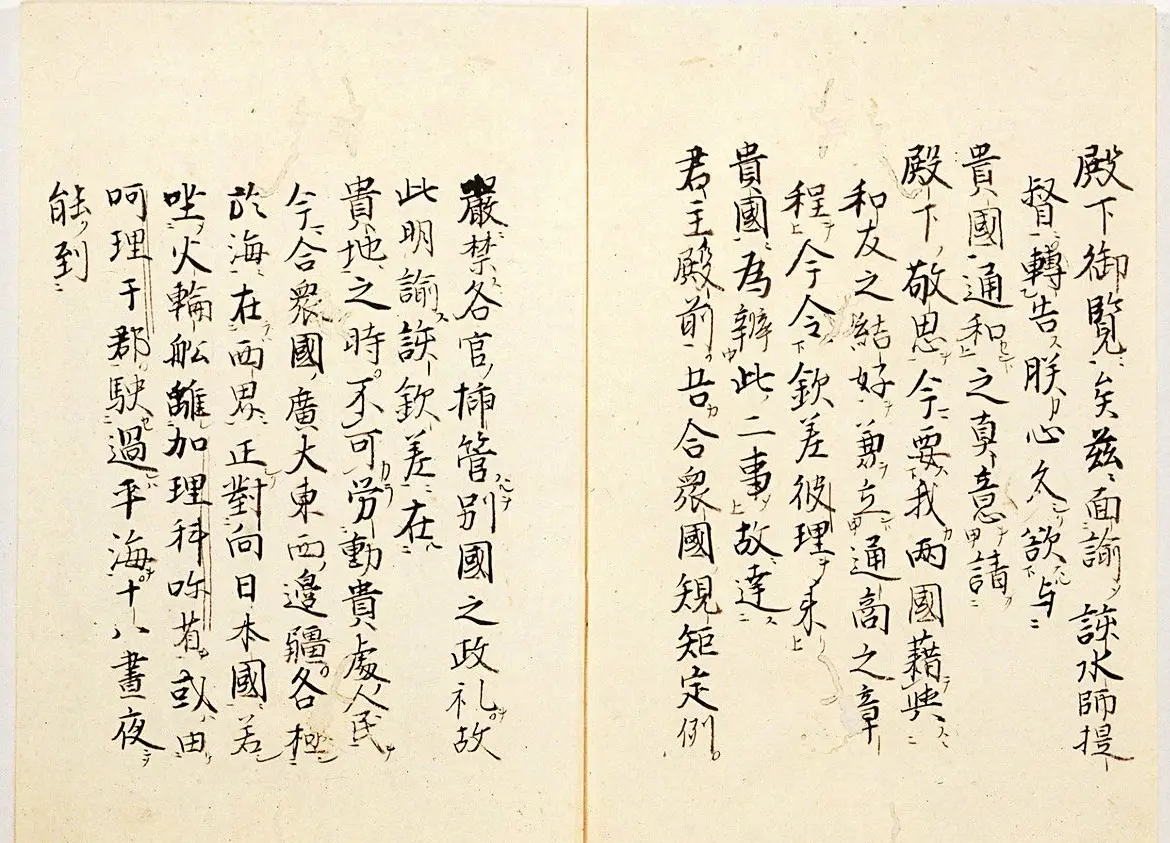 殿下御覧矣茲面諭該水師提
督轉告朕心久欲与
貴國通和之真意請
殿下敬思今要我両國藉與
和友之結好兼立通商之章
程今令欽差彼理来
貴國為辨此二事故達
君主殿前吾合衆國規矩定例
嚴禁各官挿管別國之政礼故
此明諭該欽差在
貴地之時不可労動貴處人民
今合衆國廣大東西邊疆各極
於海在西界正對向日本國若
坐火輪舩離加理科呩省或由
呵理于郡駛過平海十八晝夜
能到